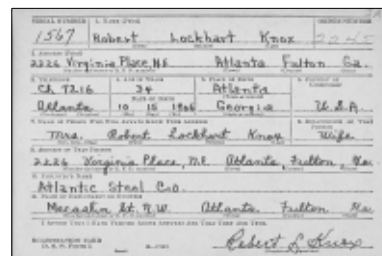 SERIAL NUMBER 1. NAME (Print) ORDER NUMBER
1567 Robert Lockhart Knox 2245
2. ADDRESS (Print)
2226 Virginia Place, N.E. Atlanta Fulton Ga.
3. TELEPHONE 4. AGE IN YEARS 5. PLACE OF BIRTH 6. COUNTRY OF CITIZENSHIP
Ch 7216 34 Atlanta
DATE OF BIRTH
Atlanta 10 15 1906 Georgia U.S.A.
7. NAME OF PERSON WHO WILL ALWAYS KNOW YOUR ADDRESS 8. RELATIONSHIP OF THAT PERSON
Mrs. Robert Lockhart Knox Wife
9. ADDRESS OF THAT PERSON
2226 Virginia Place, N.E. Atlanta Fulton, Ga.
10. EMPLOYER'S NAME
Atlantic Steel Co.
11. PLACE OF EMPLOYMENT OR BUSINESS
St. N.W. Atlanta Fulton Ga.
I AFFIRM THAT I HAVE VERIFIED ABOVE ANSWERS AND THAT THEY ARE TRUE.
REGISTRATION CARD
D. S. S. Form 1
Robert L. Knox